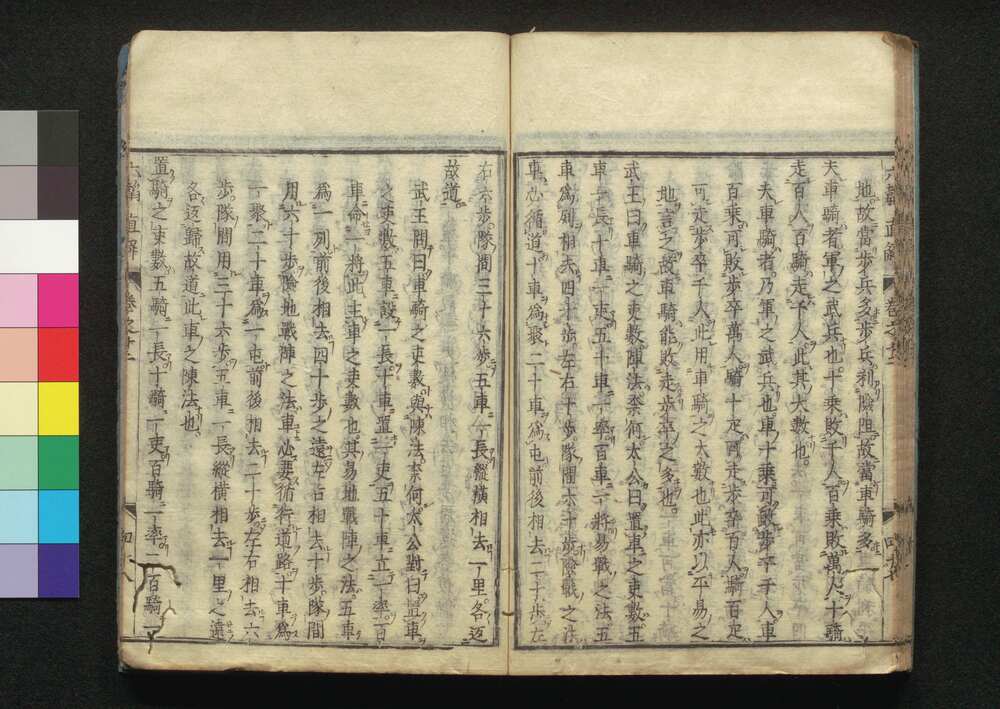 地故當步兵多步兵利險阻故當車騎多
夫車騎者軍之武兵也十乘敗千人百乘敗萬人十騎
走百人百騎走千人此其大數也
夫車騎者乃軍之武兵也車十乘可敗步卒千人車
百乘可敗步卒萬人騎十疋可走步卒百人騎百疋
可走步卒千人此用車騎之大數也此亦以平易之
地言之故車騎能敗走步卒之多也
武王曰車騎之吏數陣法柰何太公曰置車之吏數五
車一長十車一吏五十車一率百車一將易戰之法五
車爲列相去四十步左右十步隊間六十步險戰之法
車必循道十車爲聚二十車爲屯前後相去二十步左
右六步隊間三十六步五車一長縱橫相去一里各返
故道
武王問曰車騎之吏數與陳法柰何太公對曰置車
之吏數五車設一長十車置一吏五十車立一率百
車命一將此主車之吏數也其易地戰陣之法五車
爲一列前後相去四十步之遠左右相去十步隊間
用六十步險地戰陣之法車必要循行道路十車爲
一聚二十車爲一屯前後相去二十步左右相去六
步隊間用三十六步五車一長縱橫相去一里之遠
各返歸故道此車之陳法也
置騎之吏數五騎一長十騎一吏百騎一率二百騎一
六韜直解
卷之十二